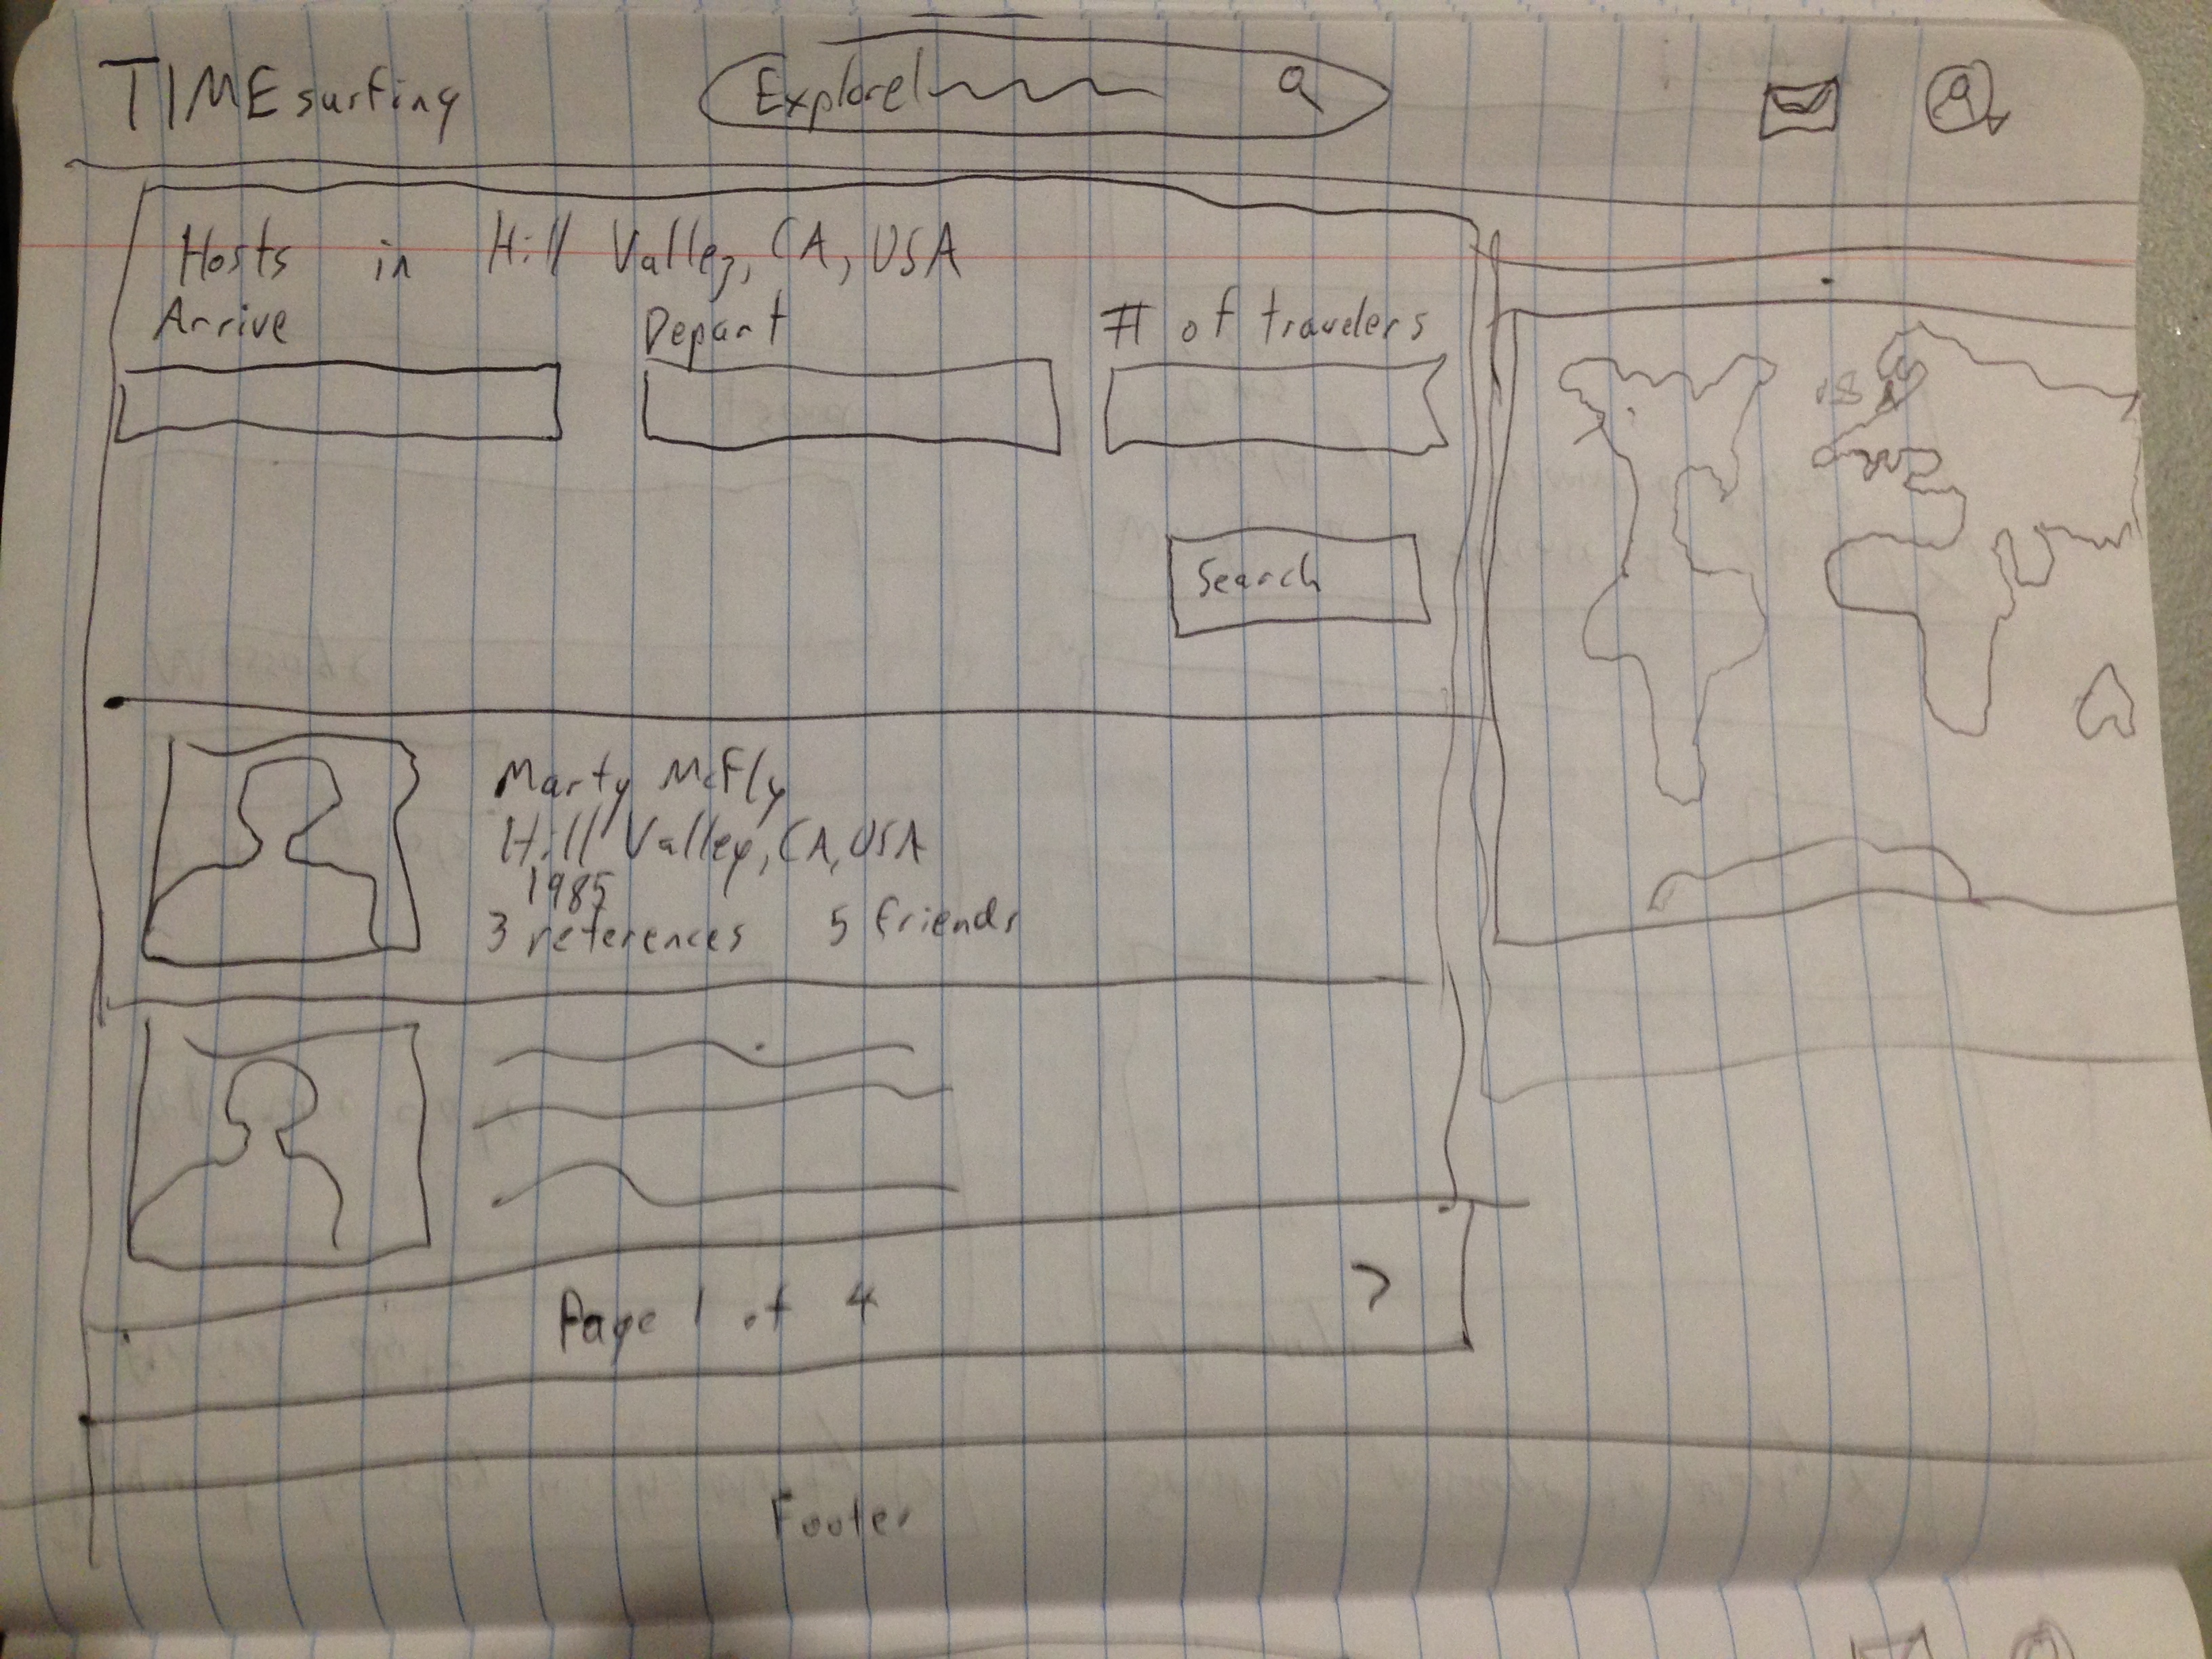 TIMEsurfing
Explore
Hosts in Hill Valley, CA, USA
Arrive Depart # of travelers
Search
Marty McFly
Hill Valley, CA, USA
1985
3 references 5 friends
Page 1 of 4 >
Footer